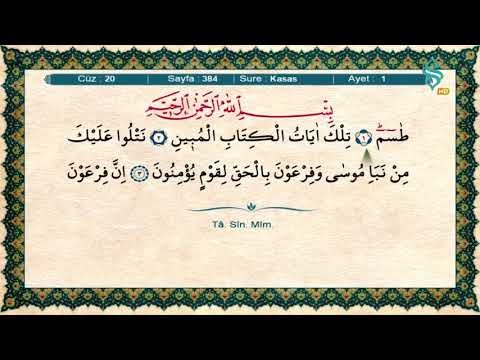 Cüz : 20 Sayfa : 384 Sure : Kasas Ayet : 1
HD
بِسْمِ اللّٰهِ الرَّحْمٰنِ الرَّحٖيمِ
طٰسٓمٓ ﴿١﴾ تِلْكَ اٰيَاتُ الْكِتَابِ الْمُبٖينِ ﴿٢﴾ نَتْلُوا عَلَيْكَ
مِنْ نَبَأِ مُوسٰى وَفِرْعَوْنَ بِالْحَقِّ لِقَوْمٍ يُؤْمِنُونَ ﴿٣﴾ اِنَّ فِرْعَوْنَ
Tâ. Sîn. Mîm.